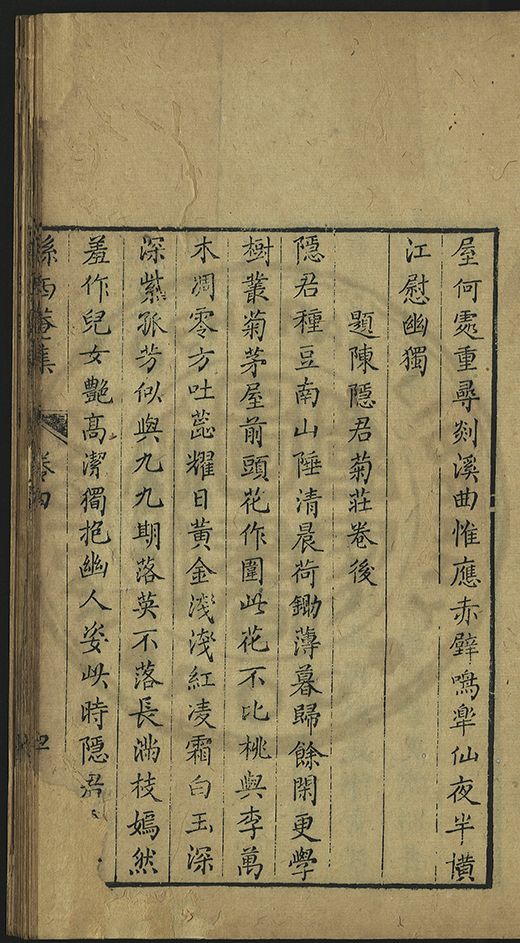 屋何處重尋剡溪曲惟應赤壁鳴臯仙夜半橫
江慰幽獨
題陳隱君菊莊卷後
隱君種豆南山陲清晨荷鋤薄暮歸餘閑更學
樹叢菊茅屋前頭花作圍此花不比桃與李萬
木凋零方吐蕊耀日黃金淺淺紅凌霜白玉深
深紫孤芳似與九九期落英不落長滿枝嫣然
羞作兒女艷高潔獨抱幽人姿此時隱君
孫西菴集 卷四